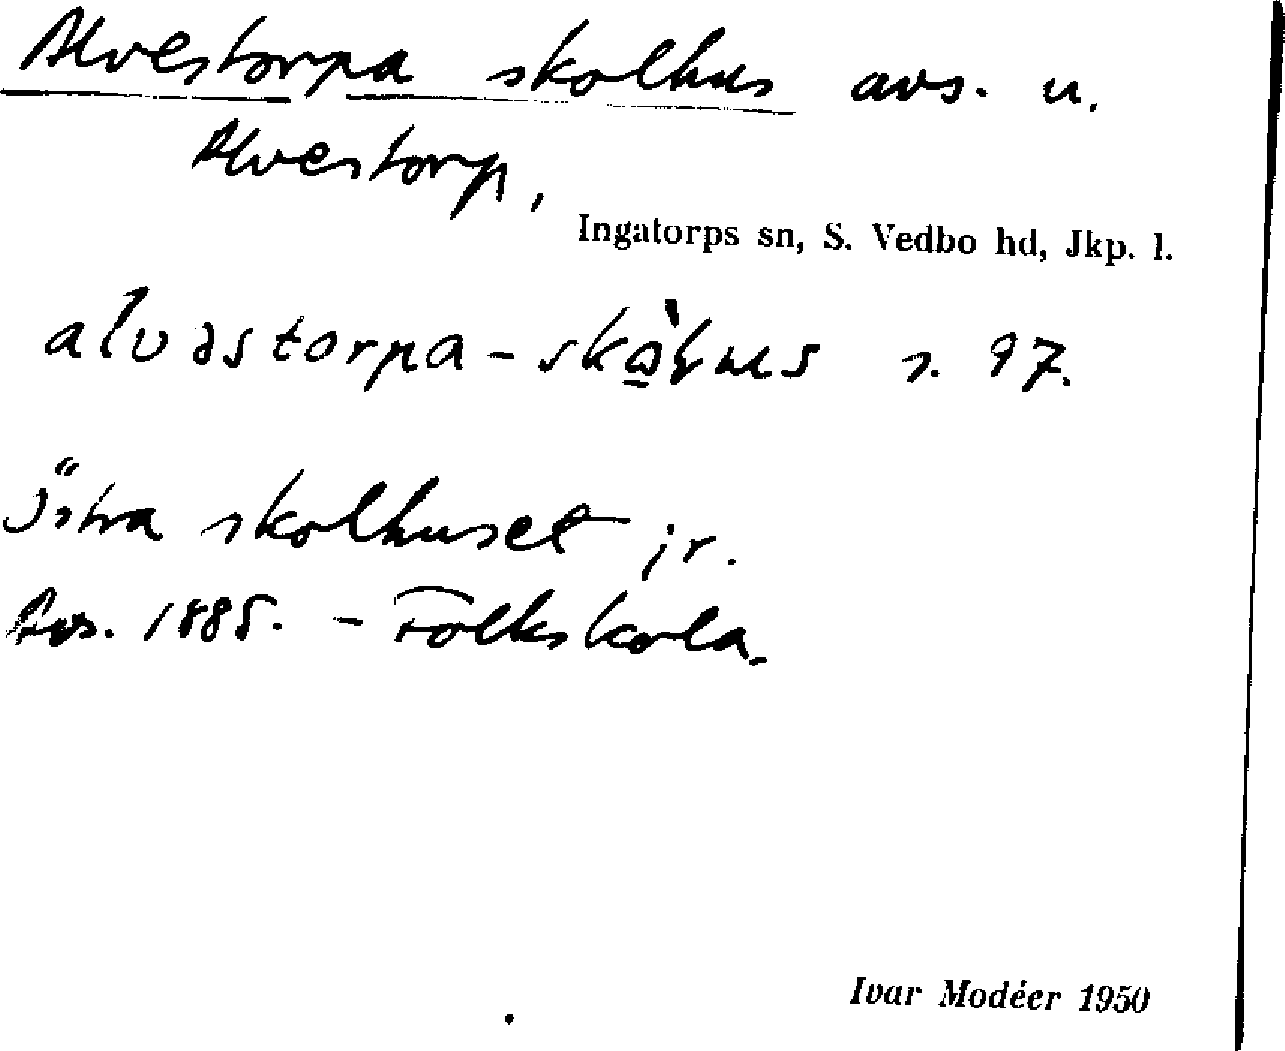 Alvestorpa skolhus avs. u.
Alvestorp,
Ingatorps sn, S. Vedbo hd, Jkp. l.
alvəstorpa- s. 97.
Östra skolhuset jr.
Avs. 1885. - Folkskola.
Ivar Modéer 1950